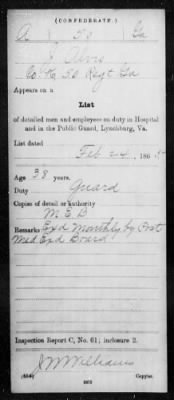 (CONFEDERATE.)
A 50 Ga
J Alvis
Co. K, 50 Regt Ga
Appears on a
List
of detailed men and employees on duty in Hospital
and in the Public Guard, Lynchburg, Va.
List dated
Feb 24, 1865
Age 38 years.
Duty Guard
Copies of detail or authority
M. E. B
Remarks Exd Monthly by Post
Med Exd Board
Inspection Report C, No. 61; inclosure 2.
J W Williams
Copyist.